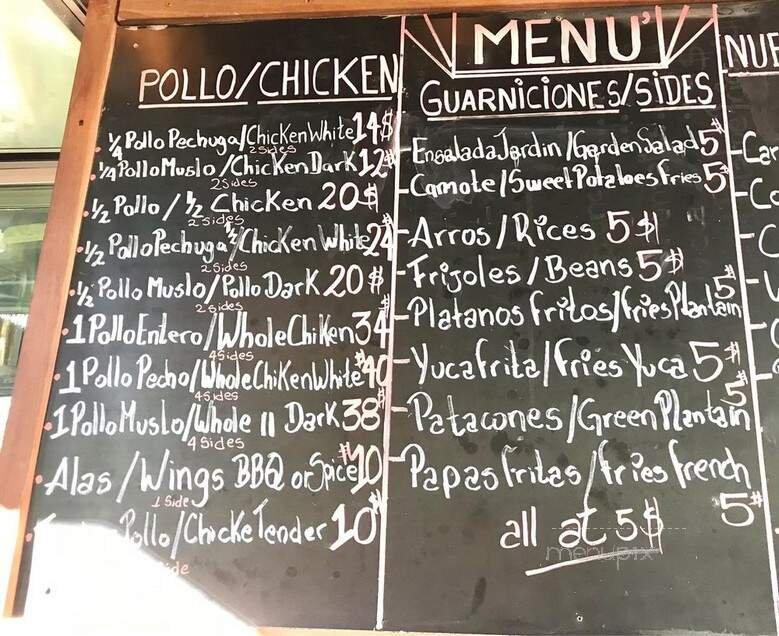 MENU'
POLLO/CHICKEN
1/4 Pollo Pechuga/Chicken White 14$
2 Sides
1/4 Pollo Muslo/Chicken Dark 12$
2 Sides
1/2 Pollo/1/2 Chicken 20$
2 sides
1/2 Pollo Pechuga/1/2 Chicken White 24$
2 Sides
1/2 Pollo Muslo/Pollo Dark 20$
2 sides
1 Pollo Entero/Whole ChiKen 34$
4 Sides
1 Pollo Pecho/Whole ChiKen White $40
4 Sides
1 Pollo Muslo/Whole 11 Dark 38$
4 Sides
Alas/Wings BBQ or Spice $10
1 Side
Pollo/Chicke Tender 10$
GUARNICIONES/SIDES
Ensalada Jardin/Garden Salad 5$
Camote/Sweet Potatoes Fries 5$
Arros/Rices 5$
Frijoles/Beans 5$
Platanos fritos/fries Plantain 5$
Yuca frita/fries Yuca 5$
Patacones/Green Plantain 5$
Papas fritas/fries french 5$
all at 5$
menupix
NUE
Car